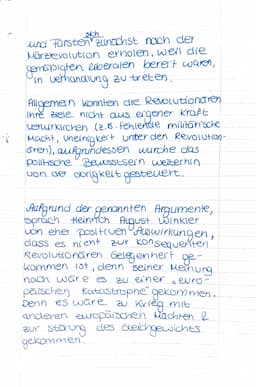 und Fürsten sich zunächst nach der
Märzrevolution erholen, weil die
gemäßigten Liberalen bereit waren,
in Verhandlung zu treten.
Allgemein konnten die Revolutionären
ihre Ziele nicht aus eigener Kraft
verwirklichen (z.B. Fehlende militärische
Macht, Uneinigkeit unter den Revolution-
ären), aufgrundessen wurde das
politische Bewusstsein weiterhin
von der Obrigkeit gesteuert.
Aufgrund der genannten Argumente,
sprach Heinrich August Winkler
von eher positiven Auswirkungen,
dass es nicht zur konsequenten
Revolutionären Gelegenheit ge-
kommen ist, denn seiner Meinung
nach wäre es zu einer „euro-
päischen Katastrophe" gekommen.
Denn es wäre zu Krieg mit
anderen europäischen Mächten &
zur Störung des Gleichgewichts
gekommen.